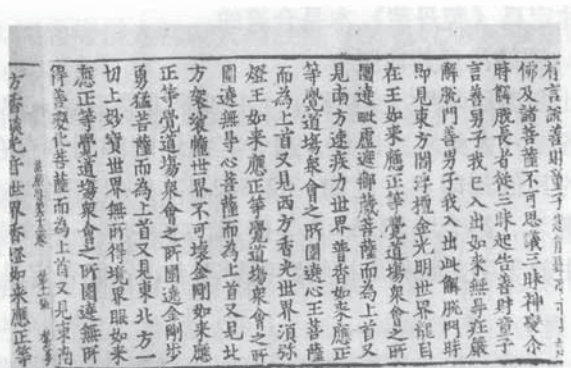 有言說善財童子悉能
佛及諸菩薩不可思議三昧神變尒
時解脫長者從三昧起告善財童子
言善男子我已入出如來無㝵莊嚴
解脫門善男子我入出此解脫門時
即見東方閻浮檀金光明世界龍自
在王如來應正等覺道場衆會之所
圍遶毗盧遮那藏菩薩而為上首又
見南方速疾力世界普香如來應正
等覺道場衆會之所圍遶心王菩薩
而為上首又見西方香光世界須弥
燈王如來應正等覺道場衆會之所
圍遶無㝵心菩薩而為上首又見北
方袈裟幢世界不可壞金剛如來應
正等覺道場衆會之所圍遶金剛步
勇猛菩薩而為上首又見東北方一
切上妙寶世界無所得境界眼如來
應正等覺道場衆會之所圍遶無所
得善變化菩薩而為上首又見東南
方香焰光音世界香燈如來應正等